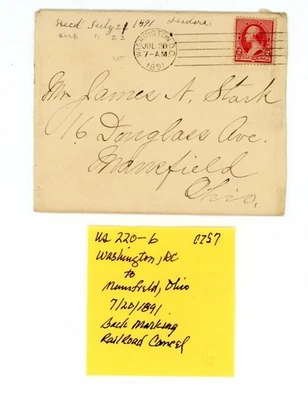 Recd July 21 1891
WASHINGTON, D.C.
JUL 20
7-AM
1891
Mr. James A. Stark
16 Douglass Ave.
Mansfield
Ohio.
US 220-6 0757
Washington, DC
to
Mansfield, Ohio
7/20/1891
Back Marking
RailRoad Cancel